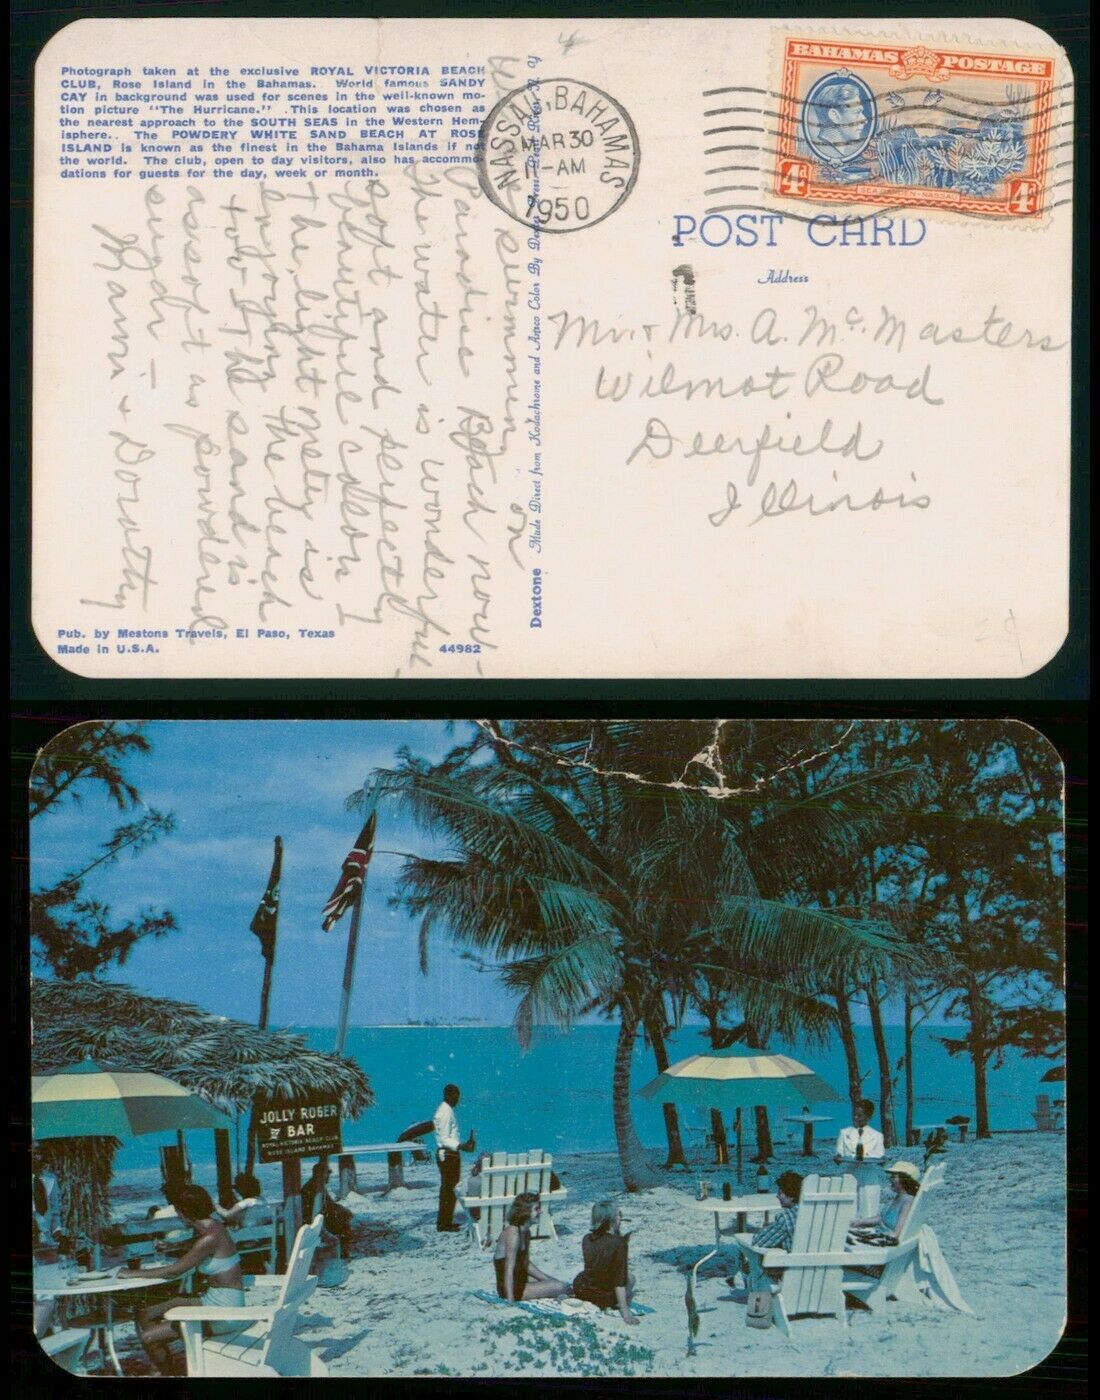 Photograph taken at the exclusive ROYAL VICTORIA BEACH
CLUB, Rose Island in the Bahamas. World famous SANDY
CAY in background was used for scenes in the well-known mo-
tion picture "The Hurricane." This location was chosen as
the nearest approach to the SOUTH SEAS in the Western Hem-
isphere.. The POWDERY WHITE SAND BEACH AT ROSE
ISLAND is known as the finest in the Bahama Islands if not
the world. The club, open to day visitors, also has accommo-
dations for guests for the day, week or month.
swimming on
Paradise Beach now -
The water is wonderful
soft and perfectly
beautiful color. I
The light is
enjoying the beach
too. The sand is
as soft as powdered
sugar -
+ Dorothy
Pub. by Mestons Travels, El Paso, Texas
Made in U.S.A.
44982
Dextone Made Direct from Kodachrome and Ansco Color By
NASSAU, BAHAMAS
MAR 30
11-AM
1950
BAHAMAS POSTAGE
4d
4d
POST CARD
Address
Mr. + Mrs. A. McMasters
Wilmot Road
Deerfield
Illinois
JOLLY ROGER
BAR
ROYAL VICTORIA BEACH CLUB
ROSE ISLAND BAHAMAS